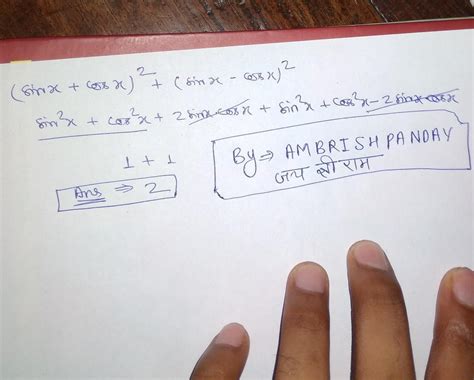 (sinx + cosx)² + (sinx - cosx)²
sin²x + cos²x + 2 sinx cosx + sin²x + cos²x - 2 sinx cosx
1 + 1
Ans ⇒ 2
By ⇒ AMBRISH PANDAY
जय श्री राम